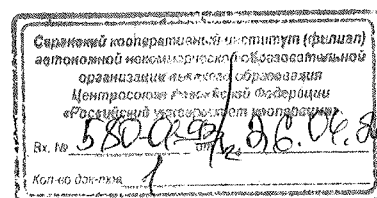 Саранский кооперативный институт (филиал)
автономной некоммерческой образовательной
организации высшего образования
Центросоюза Российской Федерации
«Российский университет кооперации»
Вх. № 580 от 26.04.2
Кол-во док-тов 1